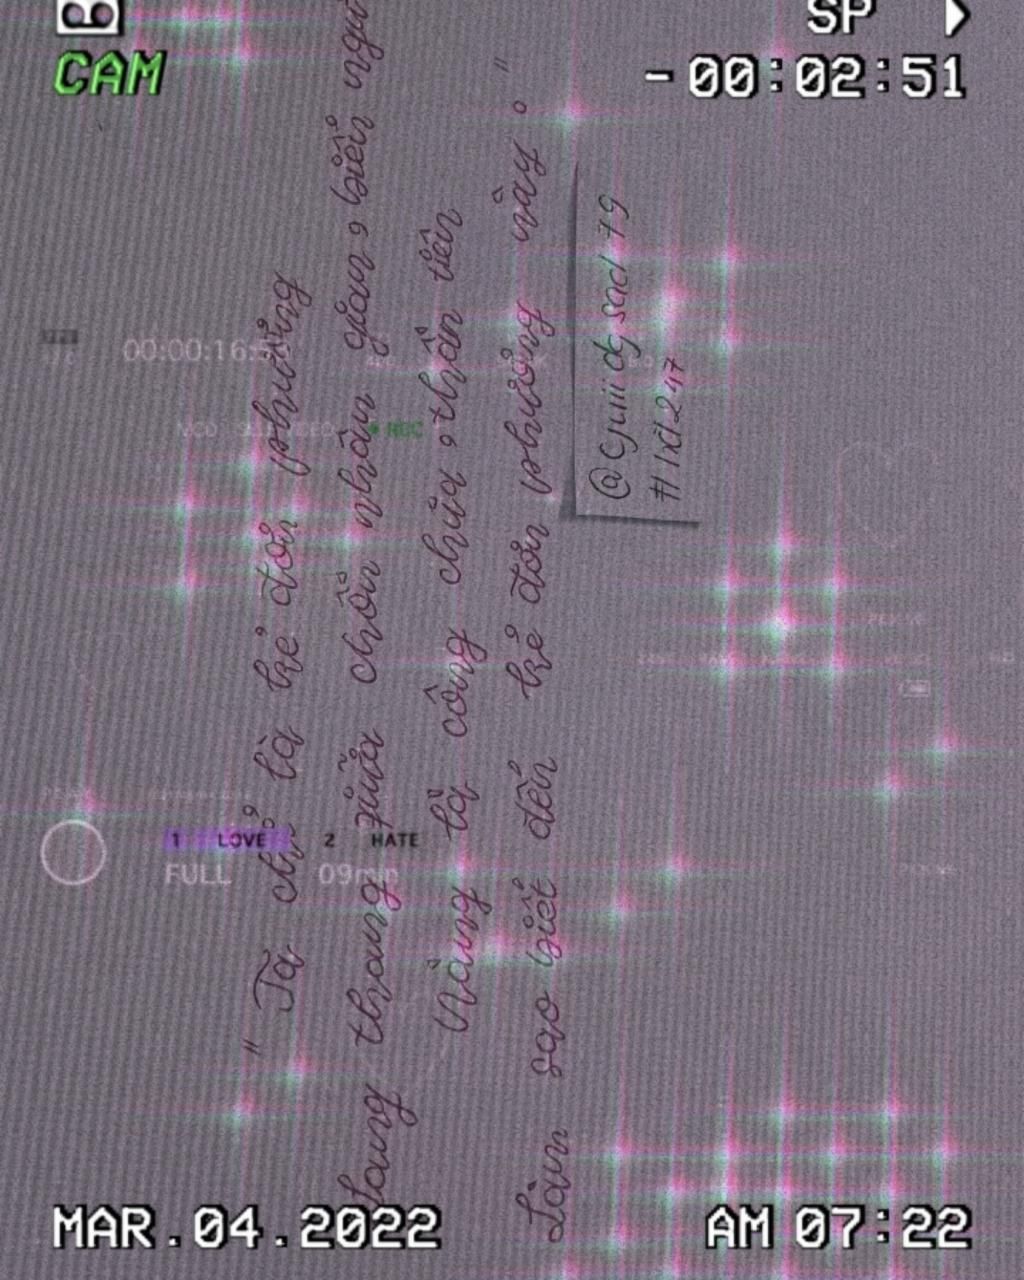 SP
CAM
-00:02:51
" Ta chỉ là kẻ đơn phương
lang thang giữa chốn nhân gian, biển người
Nàng là công chúa, thần tiên
Làm sao biết đến kẻ đơn phương này. "
00:00:16
REC
1 LOVE 2 HATE
FULL 09min
MAR.04.2022
AM 07:22